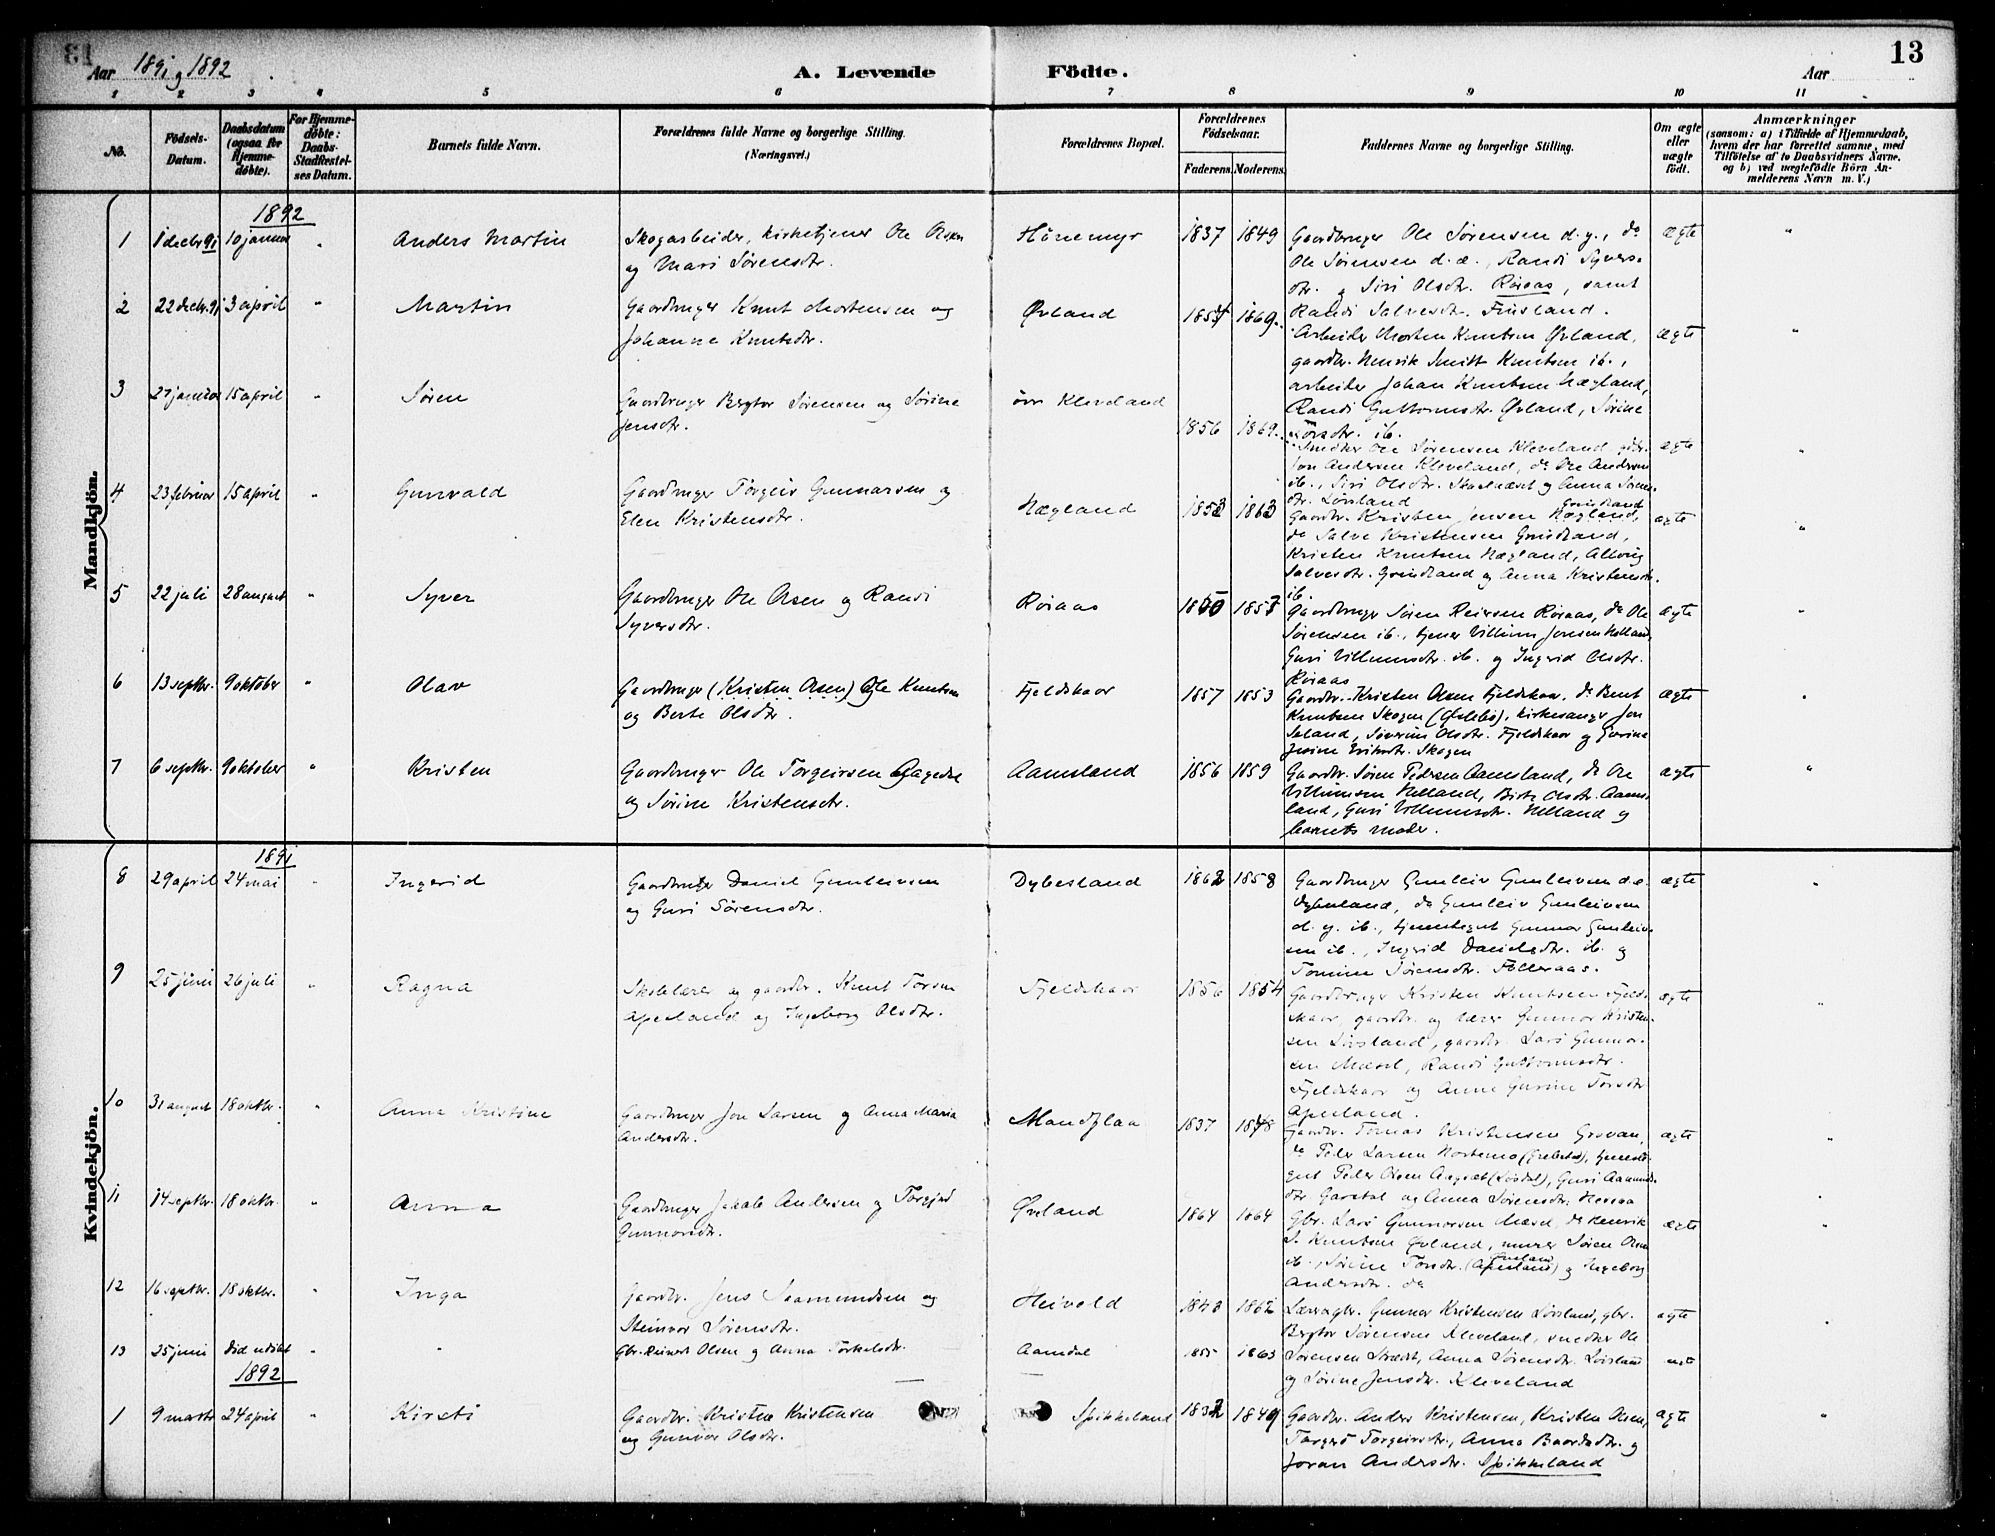 13
Aar 1891 og 1892
A. Levende Födte.
Aar
1 2 3 4 5 6 7 8 9 10 11
No.
Födsels-
Datum.
Daabsdatum
(ogsaa for
Hjemme-
döbte).
For Hjemme-
döbte:
Daabs-
Stadfæstel-
ses Datum.
Barnets fulde Navn.
Forældrenes fulde Navne og borgerlige Stilling.
(Næringsvei.)
Forældrenes Bopæl.
Forældrenes
Födselsaar.
Faderens. Moderens.
Faddernes Navne og borgerlige Stilling.
Om ægte
eller
uægte
födt.
Anmærkninger
(saasom: a) i Tilfælde af Hjemmedaab,
hvem der har forrettet samme, med
Tilföielse af to Daabsvidners Navne.
og b) ved uægtefödte Börn An-
melderens Navn m. V.)
Mandkjön.
1892
1 1 decbr 91 10 januar " Anders Martin
Skogarbeider, kirketjener Ole Olsen
og Mari Sørensdr.
Hönemyr 1837 1849
Gaardbruger Ole Sørensen d.y., do
Ole Sørensen d.æ., Randi Syvers-
dr. og Siri Olsdr. Røiaas, samt
Randi Salvesdr. Finsland.
ægte "
2 22 decbr. 91 3 april " Martin
Gaardbruger Knut Mortensen og
Johanne Knutsdr.
Øvland 1857 1869
Arbeider Morten Knutsen Øvland,
gaardbr. Henrik Smitt Knutsen ib.,
arbeider Johan Knutsen Hægland,
Randi Guttormsdr. Øvland, Sørine
Torsdr. ib.
ægte "
3 27 januar 15 april " Søren
Gaardbruger Bergtor Sørensen og Sørine
Jensdr.
övr Kleveland 1856 1869
Smedker Ole Sørensen Kleveland, gdbr.
Jon Andersen Kleveland, do Ole Andersen
ib., Siri Olsdr. og Anna Sørens-
dr. Løvsland
ægte "
4 23 februar 15 april " Gunvald
Gaardbruger Torgeir Gunnarsen og
Elen Kristensdr.
Hægland 1853 1863
Grindland
Gaardbr. Kristen Jensen Hægland,
do Salve Kristensen Grindland,
Kristen Knutsen Hægland, Alborg
Salvesdr. Grindland og Anna Kristensdr.
ib.
ægte "
5 22 juli 28 august " Syver
Gaardbruger Ole Olsen og Randi
Syversdr.
Røiaas 1850 1857
Gaardbruger Søren Reiersen Røiaas, do Ole
Sørensen ib., tjener Villum Jensen Helland,
Guri Villumsdr. ib. og Ingerid Olsdr.
Røiaas
ægte "
6 13 septbr. 9 oktober " Olav
Gaardbruger (Kristen Olsen) Ole Knutsen
og Berte Olsdr.
Fjeldskaar 1857 1853
Gaardbr. Kristen Olsen Fjeldskaar, do Bent
Knutsen Skogen (Øslebø), kirkesanger Jon
Seland, Severine Olsdr. Fjeldskaar og Gurine
Skogen
ægte "
7 6 septbr. 9 oktober " Kristen
Gaardbruger Ole Torgeirsen
og Sørine Kristensdr.
Aamsland 1856 1859
Gaardbr. Søren Pedersen Aamsland, do Ole
Villumsen Helland, Birte Olsdr. Aams-
land, Guri Villumsdr. Helland og
barnets moder.
ægte "
Kvindekjön.
1891
8 29 april 24 mai " Ingerid
Gaardbruger Daniel Gunleivsen
og Guri Sørensdr.
Dybesland 1862 1858
Gaardbruger Gunleiv Gunleivsen d.æ.
Dybesland, do Gunleiv Gunleivsen
d.y. ib., tjenestegut Gunnar Gunleiv-
sen ib., Ingerid Danielsdr. ib. og
Tomine Sørensdr. Folleraas.
ægte "
9 25 juni 26 juli " Ragna
Skolelærer og gaardbr. Knut Torsen
Apesland og Ingeborg Olsdr.
Fjeldskaar 1856 1854
Gaardbruger Kristen Knutsen Fjeld-
skaar, gaardbr. og lærer Gunnar Kristen-
sen Løvsland, gaardbr. Lars Gunnar-
sen Mæsel, Randi Guttormsdr.
Fjeldskaar og Anne Gurine Torsdr.
Apesland.
ægte "
10 31 august 18 oktbr. " Anna Kristine
Gaardbruger Jon Larsen og Anna Maria
Andersdr.
Mandflaa 1837 1848
Gaardbr. Tomas Kristensen Grovan,
do Peder Larsen Nortemo, tjeneste-
gut Peder Olsen, Guri Aamunds-
dr. og Anna Sørensdr.
ægte "
11 14 septbr. 18 oktbr. " Anna
Gaardbruger Jakob Andersen og Torgjerd
Gunnarsdr.
Øvland 1864 1864
Gbr. Lars Gunnarsen Mæsel, do Henrik
S. Knutsen Øvland, murer Søren Olsen
ib., Sørine Torsdr. (Apesland) Øvland og Ingeborg
Andersdr. do
ægte "
12 16 septbr. 18 oktbr. " Inga
Gaardbr. Jens Aamundsen og
Steinvor Sørensdr.
Heivold 1843 1862
Lærer gbr. Gunnar Kristensen Løvsland, gbr.
Bergtor Sørensen Kleveland, snedker Ole
Sørensen, Anna Sørensdr. Løvsland
og Sørine Jensdr. Kleveland
ægte "
13 25 juni död udöbt " "
Gbr. Reinert Olsen og Anna Torkelsdr.
Aamdal 1855 1863
ægte
1892
1 9 marts 24 april " Kirsti
Gaardbr. Kristen Kristensen
og Gunvor Olsdr.
Spikkeland 1832 1849
Gaardbr. Anders Kristensen, Kristen Olsen,
Torgerd Torgeirsdr., Anna Baardsdr. og
Joran Andersdr. Spikkeland
ægte "